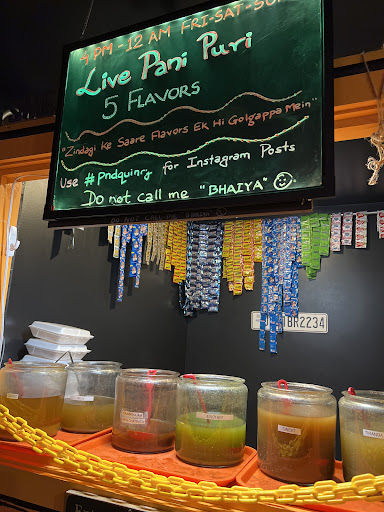 4 PM - 12 AM FRI-SAT-SUN
Live Pani Puri
5 FLAVORS
"Zindagi Ke Saare Flavors Ek Hi Golgappa Mein"
Use #Pndquincy for Instagram Posts
Do not call me "BHAIYA"
DO NOT CALL ME
TBR2234